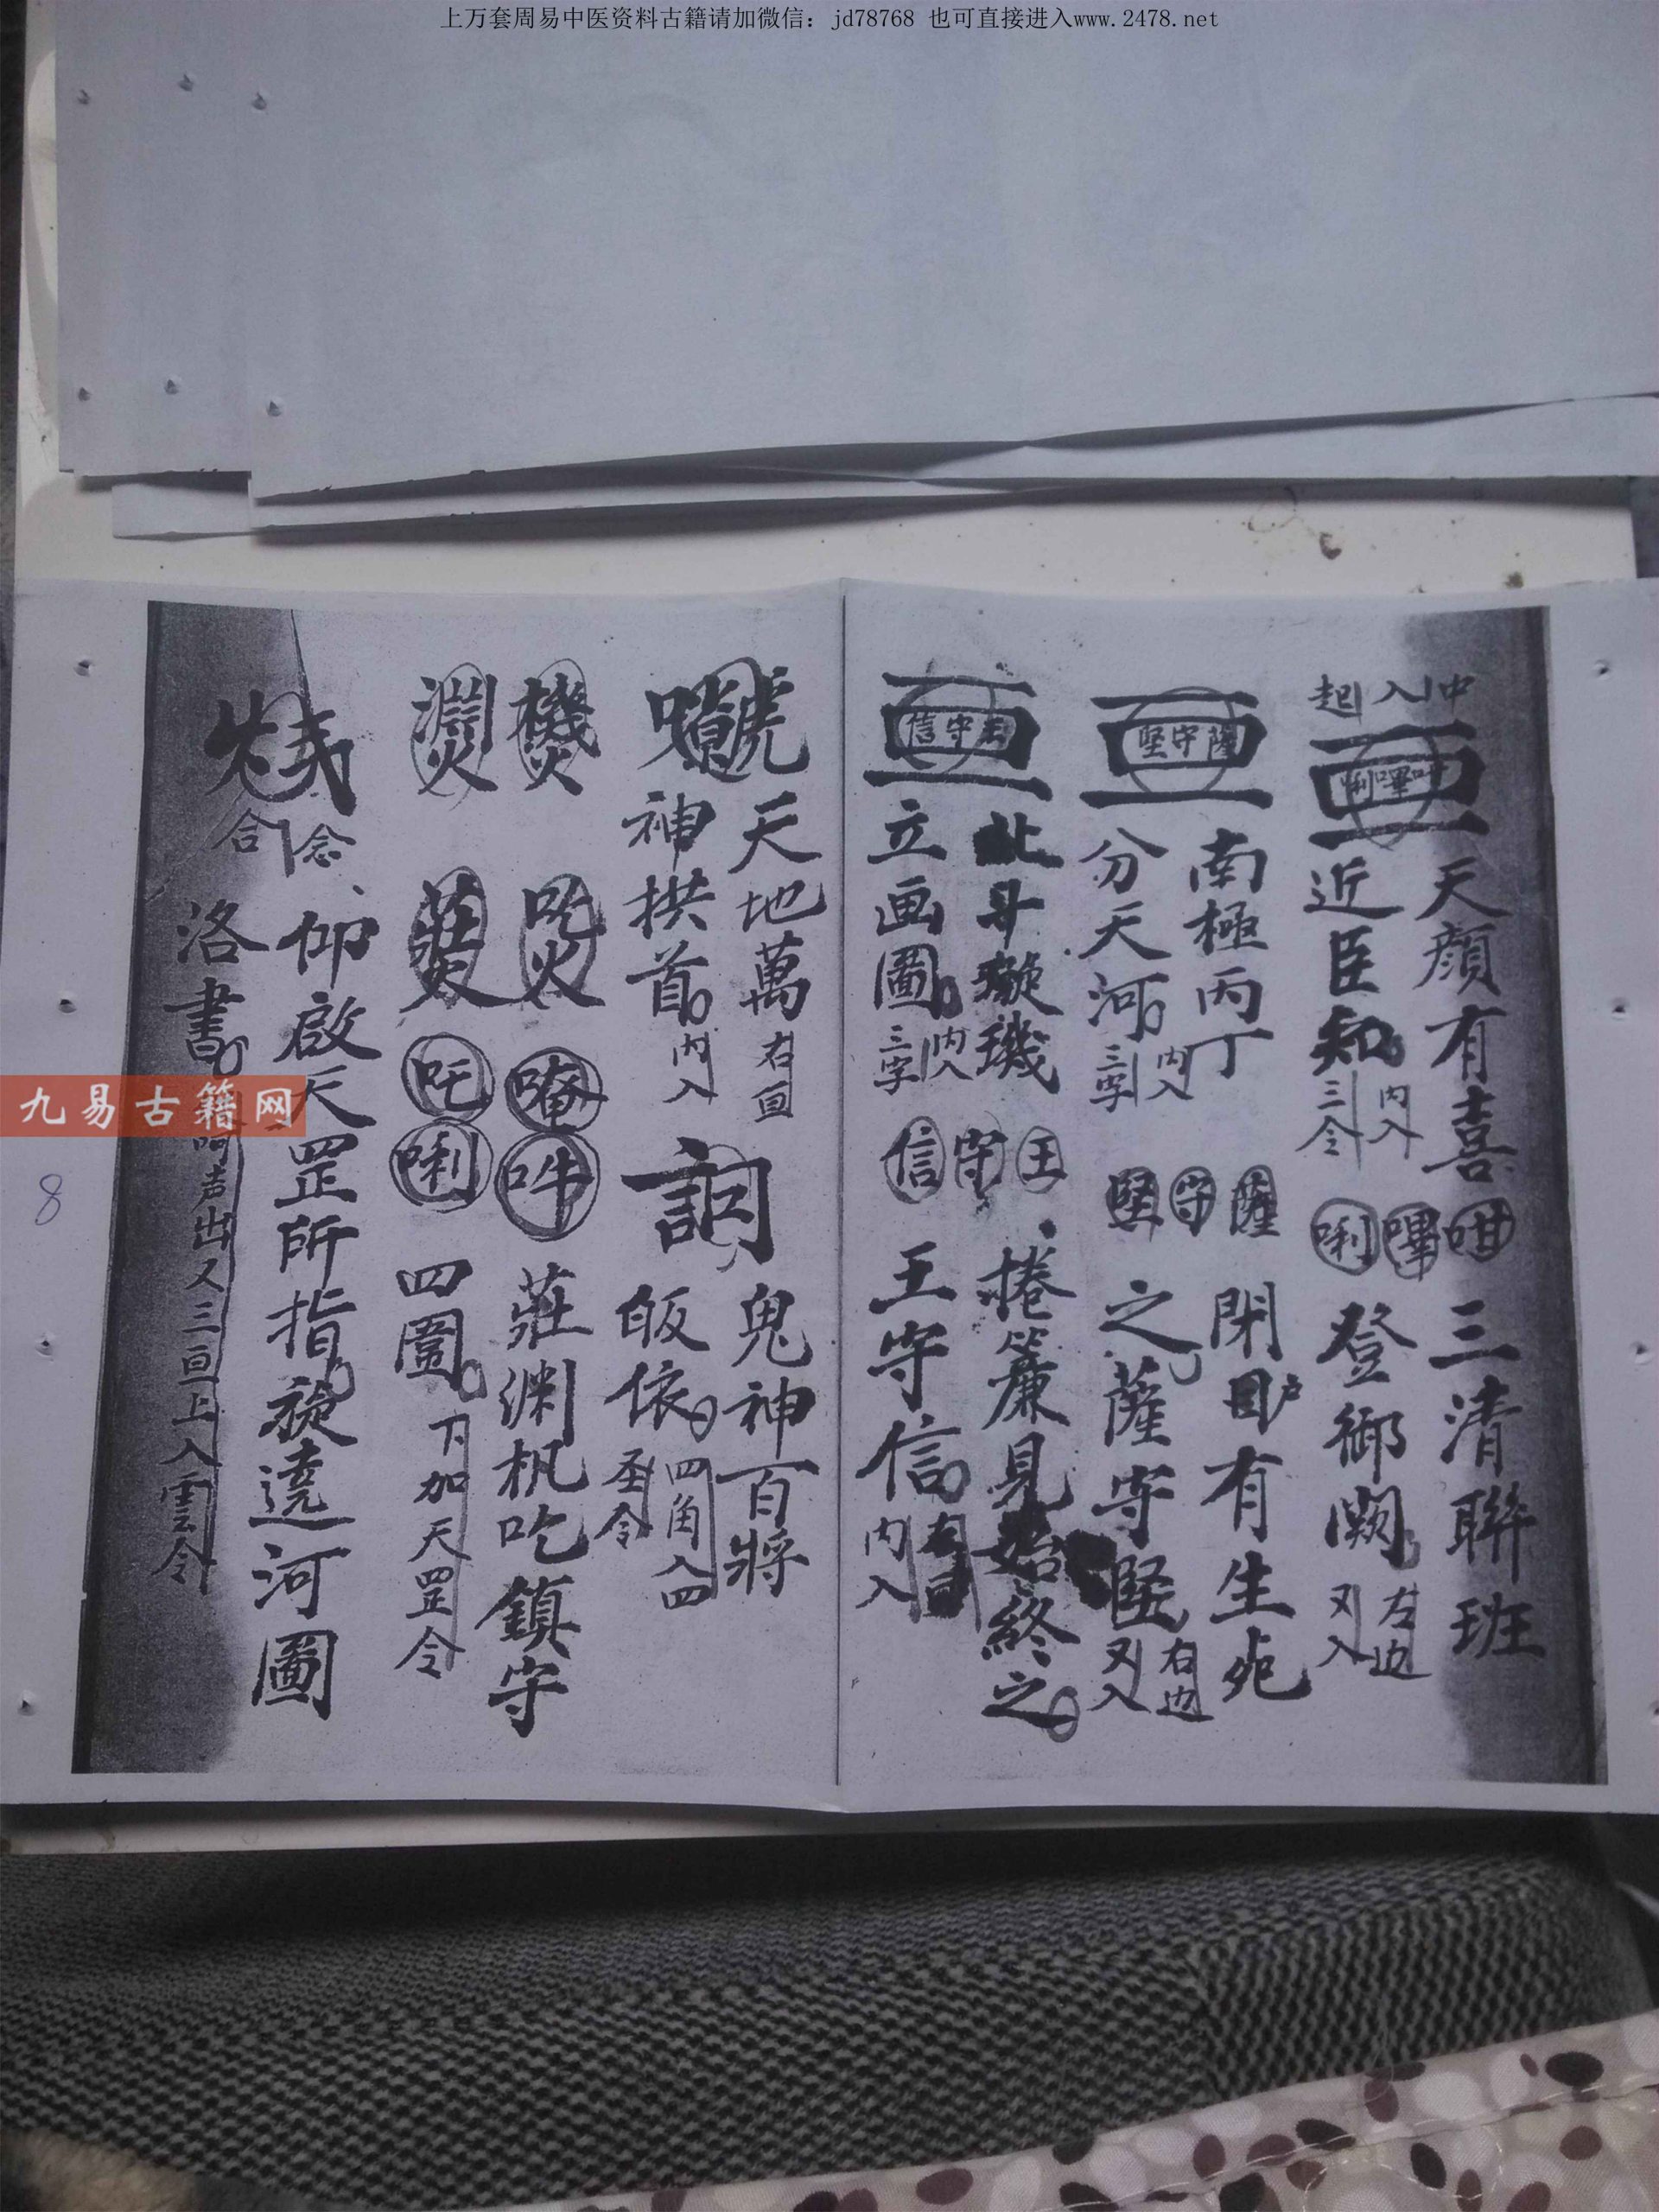 上万套周易中医资料古籍请加微信：jd78768 也可直接进入www.2478.net
中入起
天顏有喜
近臣知
内入
三令
咁嗶唎
三清聯班
登御闕
左边
又入
薩守堅
南極丙丁
分天河
内入
三字
薩守堅
閉目户有生
之薩守堅
右边
又入
王守信
北斗璇璣
立画圖
内入
三字
王守信
捲簾見始終之
王守信
内入
天地萬
神拱首
右亘
内入
鬼神百將
皈依
四角入四
圣令
唵吽
吒唎
莊渊机吃鎮守
四圖
下加天罡令
念
合
仰啟天罡所指旋遶河圖
洛書
声出又三亘上入雲令
九易古籍网
8